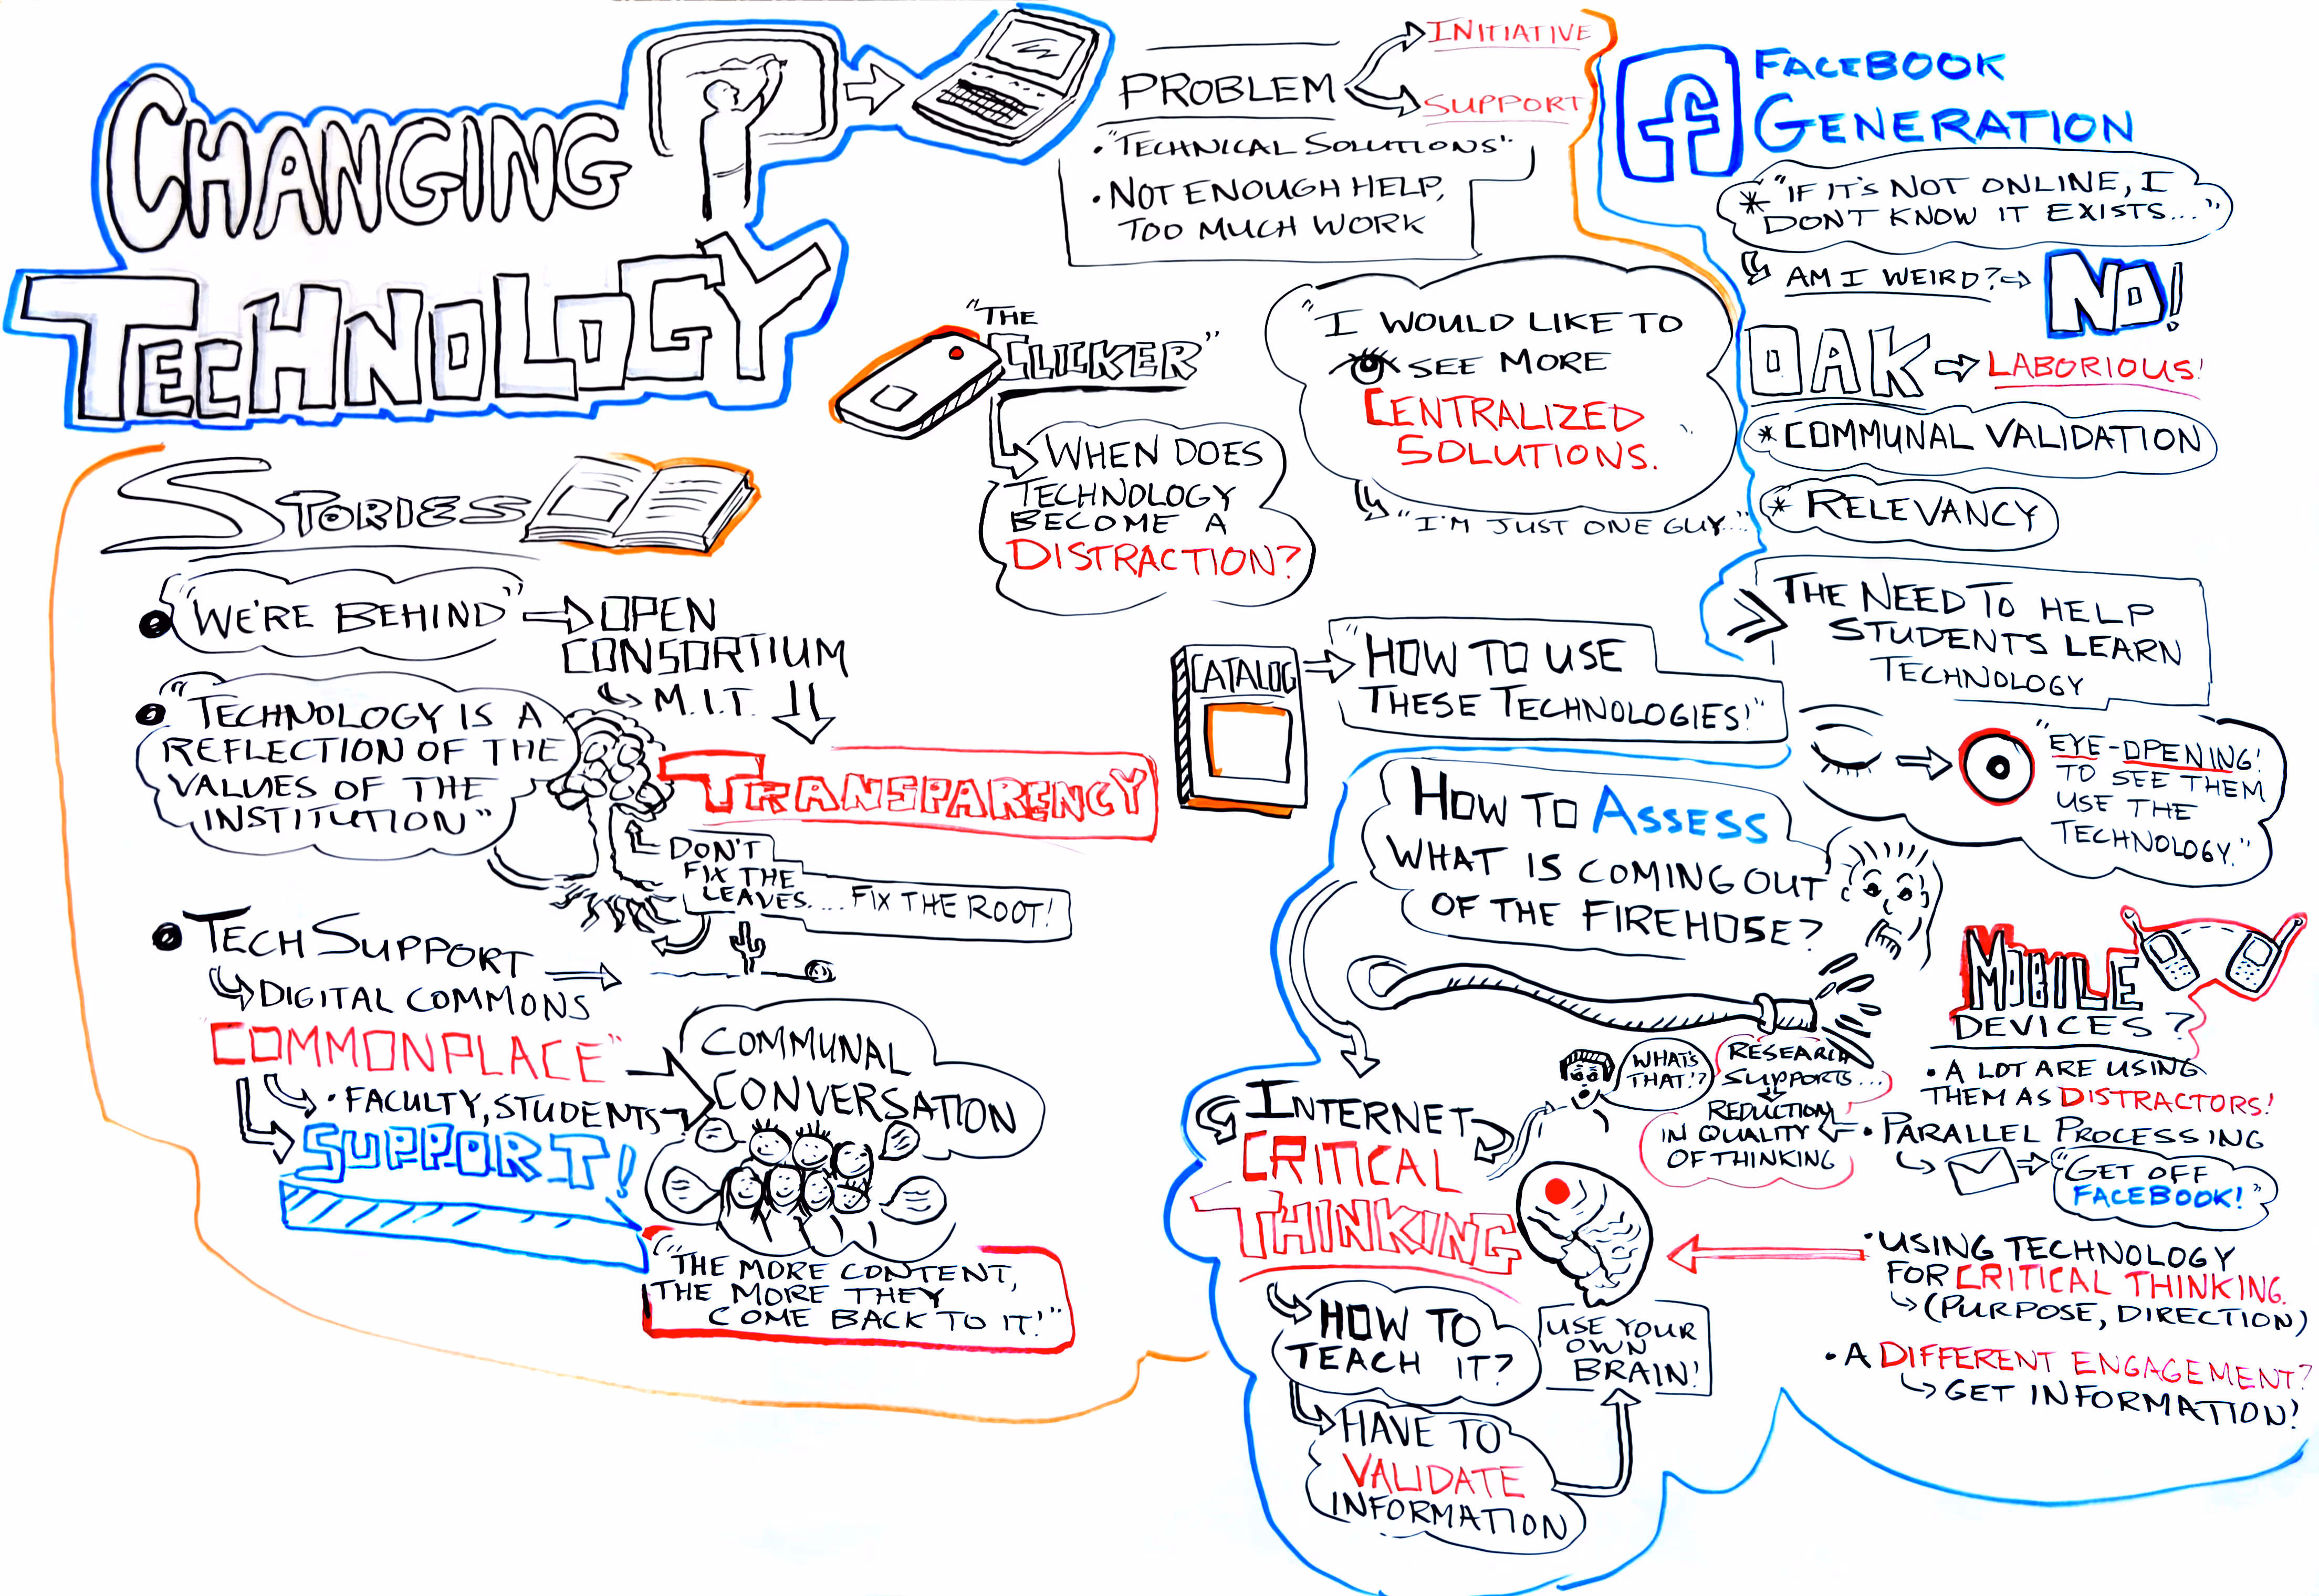 CHANGING
TECHNOLOGY
PROBLEM
INITIATIVE
SUPPORT
• "TECHNICAL SOLUTIONS"
• NOT ENOUGH HELP,
TOO MUCH WORK
"THE
CLICKER"
WHEN DOES
TECHNOLOGY
BECOME A
DISTRACTION?
"I WOULD LIKE TO
SEE MORE
CENTRALIZED
SOLUTIONS.
"I'M JUST ONE GUY..."
f
FACEBOOK
GENERATION
* "IF IT'S NOT ONLINE, I
DON'T KNOW IT EXISTS..."
AM I WEIRD?
NO!
OAK
LABORIOUS!
* COMMUNAL VALIDATION
* RELEVANCY
THE NEED TO HELP
STUDENTS LEARN
TECHNOLOGY
"EYE-OPENING!
TO SEE THEM
USE THE
TECHNOLOGY."
STORIES
• "WE'RE BEHIND"
OPEN
CONSORTIUM
M.I.T.
TRANSPARENCY
• "TECHNOLOGY IS A
REFLECTION OF THE
VALUES OF THE
INSTITUTION"
DON'T
FIX THE
LEAVES....FIX THE ROOT!
• TECH SUPPORT
DIGITAL COMMONS
"COMMONPLACE"
• FACULTY, STUDENTS
SUPPORT!
COMMUNAL
CONVERSATION
"THE MORE CONTENT,
THE MORE THEY
COME BACK TO IT!"
CATALOG
"HOW TO USE
THESE TECHNOLOGIES!"
HOW TO ASSESS
WHAT IS COMING OUT
OF THE FIREHOSE?
INTERNET
CRITICAL
THINKING
HOW TO
TEACH IT?
HAVE TO
VALIDATE
INFORMATION
USE YOUR
OWN
BRAIN!
WHAT'S
THAT!?
RESEARCH
SUPPORTS...
REDUCTION
IN QUALITY
OF THINKING
MOBILE
DEVICES?
• A LOT ARE USING
THEM AS DISTRACTORS!
• PARALLEL PROCESSING
"GET OFF
FACEBOOK!"
• USING TECHNOLOGY
FOR CRITICAL THINKING.
(PURPOSE, DIRECTION)
• A DIFFERENT ENGAGEMENT?
GET INFORMATION!